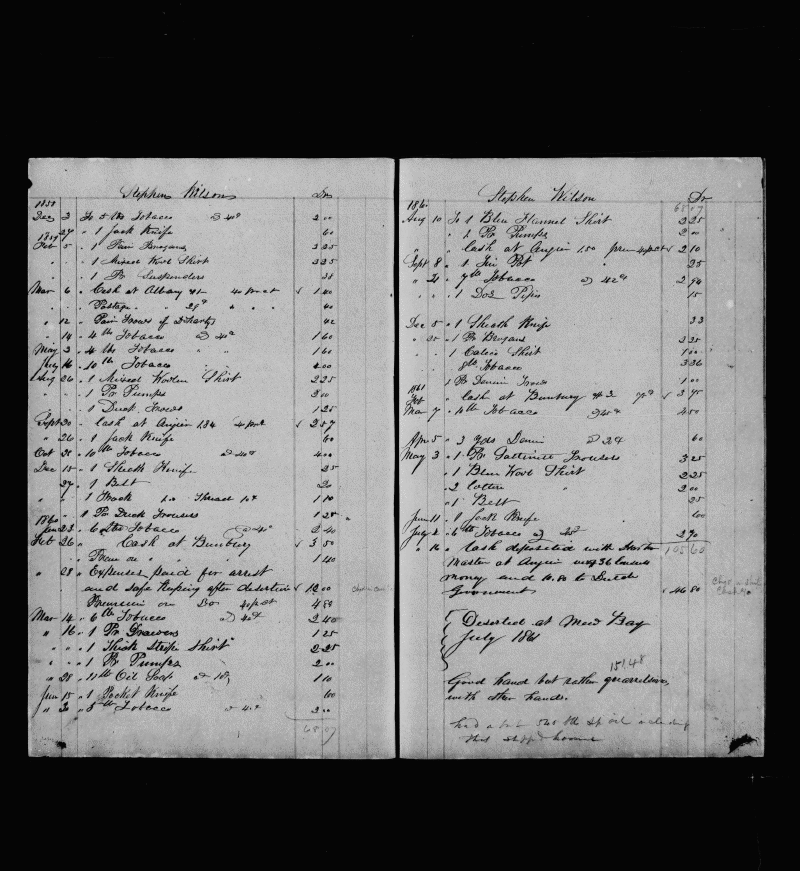 Stephen Wilson Dr
1858
Dec 3 To 5 lbs Tobacco @ 40¢ 2 00
" 27 " 1 Jack Knife 60
1859
Feb 5 " 1 Pair Brogans 3 25
" " " 1 Mixed Wool Shirt 2 25
" " " 1 Pr Suspenders 38
Mar 6 " Cash at Albany 40 pr ct 1 40
Postage " 29¢ " " " 40
" 12 " Pair Trows of 42
" 14 " 4 lbs Tobacco @ 40¢ 1 60
May 3 " 4 lbs Tobacco " " 1 60
16 " 10 lb Tobacco 4 00
Aug 26 " 1 Mixed Woolen Shirt 2 25
" 1 Pr Pumps 2 00
" 1 Duck Trows 1 25
Sept 20 " Cash at Angier 1.84 40 pr ct 2 57
" 26 " 1 Jack Knife 60
Oct 31 " 10 lb Tobacco @ 40¢ 4 00
Dec 15 " 1 Sheath Knife 25
27 " 1 Belt 20
" " " 1 Frock Thread 10¢ 1 10
" " 1 Pr Duck Trousers 1 25
1860
Jan 23 " 6 lbs Tobacco @ 40¢ 2 40
Feb 26 " Cash at Bunbury 3 50
Prem on " " " 1 40
" 28 " Expenses paid for arrest
and safe Keeping after desertion 12 00
Premium on Do 40 pr ct 4 80
Mar 14 " 6 lb Tobacco @ 40¢ 2 40
" 16 " 1 Pr Drawers 1 25
" " " 1 Thick Stripe Shirt 2 25
" " " 1 Pr Pumps 2 00
" 28 " 11 lb Oil Soap @ 10¢ 1 10
Jun 15 " 1 Pocket Knife 60
" 3 " 5 lb Tobacco @ 40¢ 2 00
68.07
Stephen Wilson Dr
1860 68 07
Aug 10 To 1 Blue Flannel Shirt 2 25
" " 2 Pr Pumps 2 00
" " Cash at Angier 1.50 prem 40 pr ct 2 10
Sept 8 " 1 Tin Pot 25
" 21 " 7 lb Tobacco @ 42¢ 2 94
" " " 1 Doz Pipes 15
Dec 5 " 1 Sheath Knife 33
" 25 " 1 Pr Brogans 2 25
" " 1 Calico Shirt 1 00
8 lb Tobacco 3 36
1861 1 Pr Denim Trows 1 00
Feb " Cash at Bunbury 3 75
Mar 7 " 4 lb Tobacco @ 45¢ 4 50
Apr 5 " 3 Yds Denim @ 20¢ 60
May 3 " 1 Pr Sattinett Trousers 3 25
" 1 Blue Wool Shirt 2 25
" 2 Cotton " 2 00
" 1 Belt 25
Jun 11 " 1 Jack Knife 60
July 2 " 6 lb Tobacco @ 45¢ 2 70
" 16 " Cash deposited with Harbor 105 60
Master at Angier
money and 10.80 to Dutch
Government 46 80
Deserted at Mew Bay
July 1861
151.48
Good hand but rather quarrelsome
with other hands.